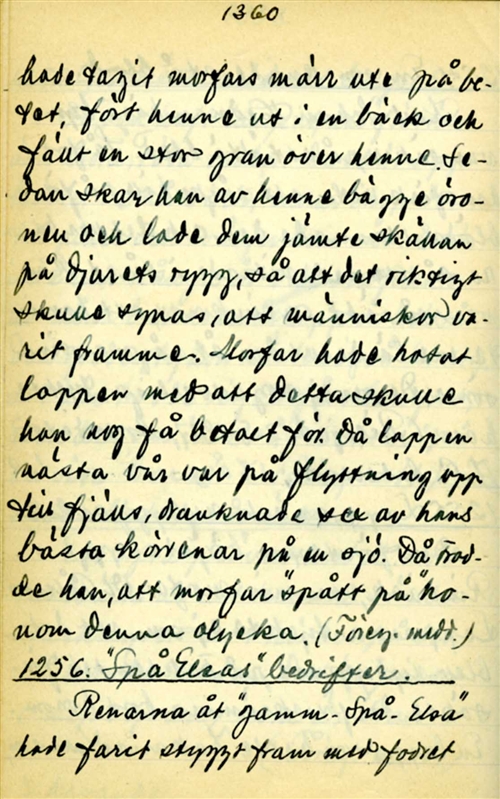 1360
hade tagit morfars märr ute på be-
tet, fört henne ut i en bäck och
fällt en stor gran över henne. Se-
dan skar han av henne bägge öro-
nen och lade dem jämte skällan
på djurets rygg, så att det riktigt
skulle synas, att människor va-
rit framme. Morfar hade hotat
lappen med att detta skulle
han nog få betalt för. Då lappen
nästa vår var på flyttning upp
till fjälls, dränknade sex av hans
bästa körrenar på en sjö. Då trod-
de han, att morfar "spått på" ho-
nom denna olycka. (Föreg. medd.)
1256. "Spå Elsas" bedrifter.
Renarna åt "gamm-Spå-Elsa"
hade farit styggt fram med fodret